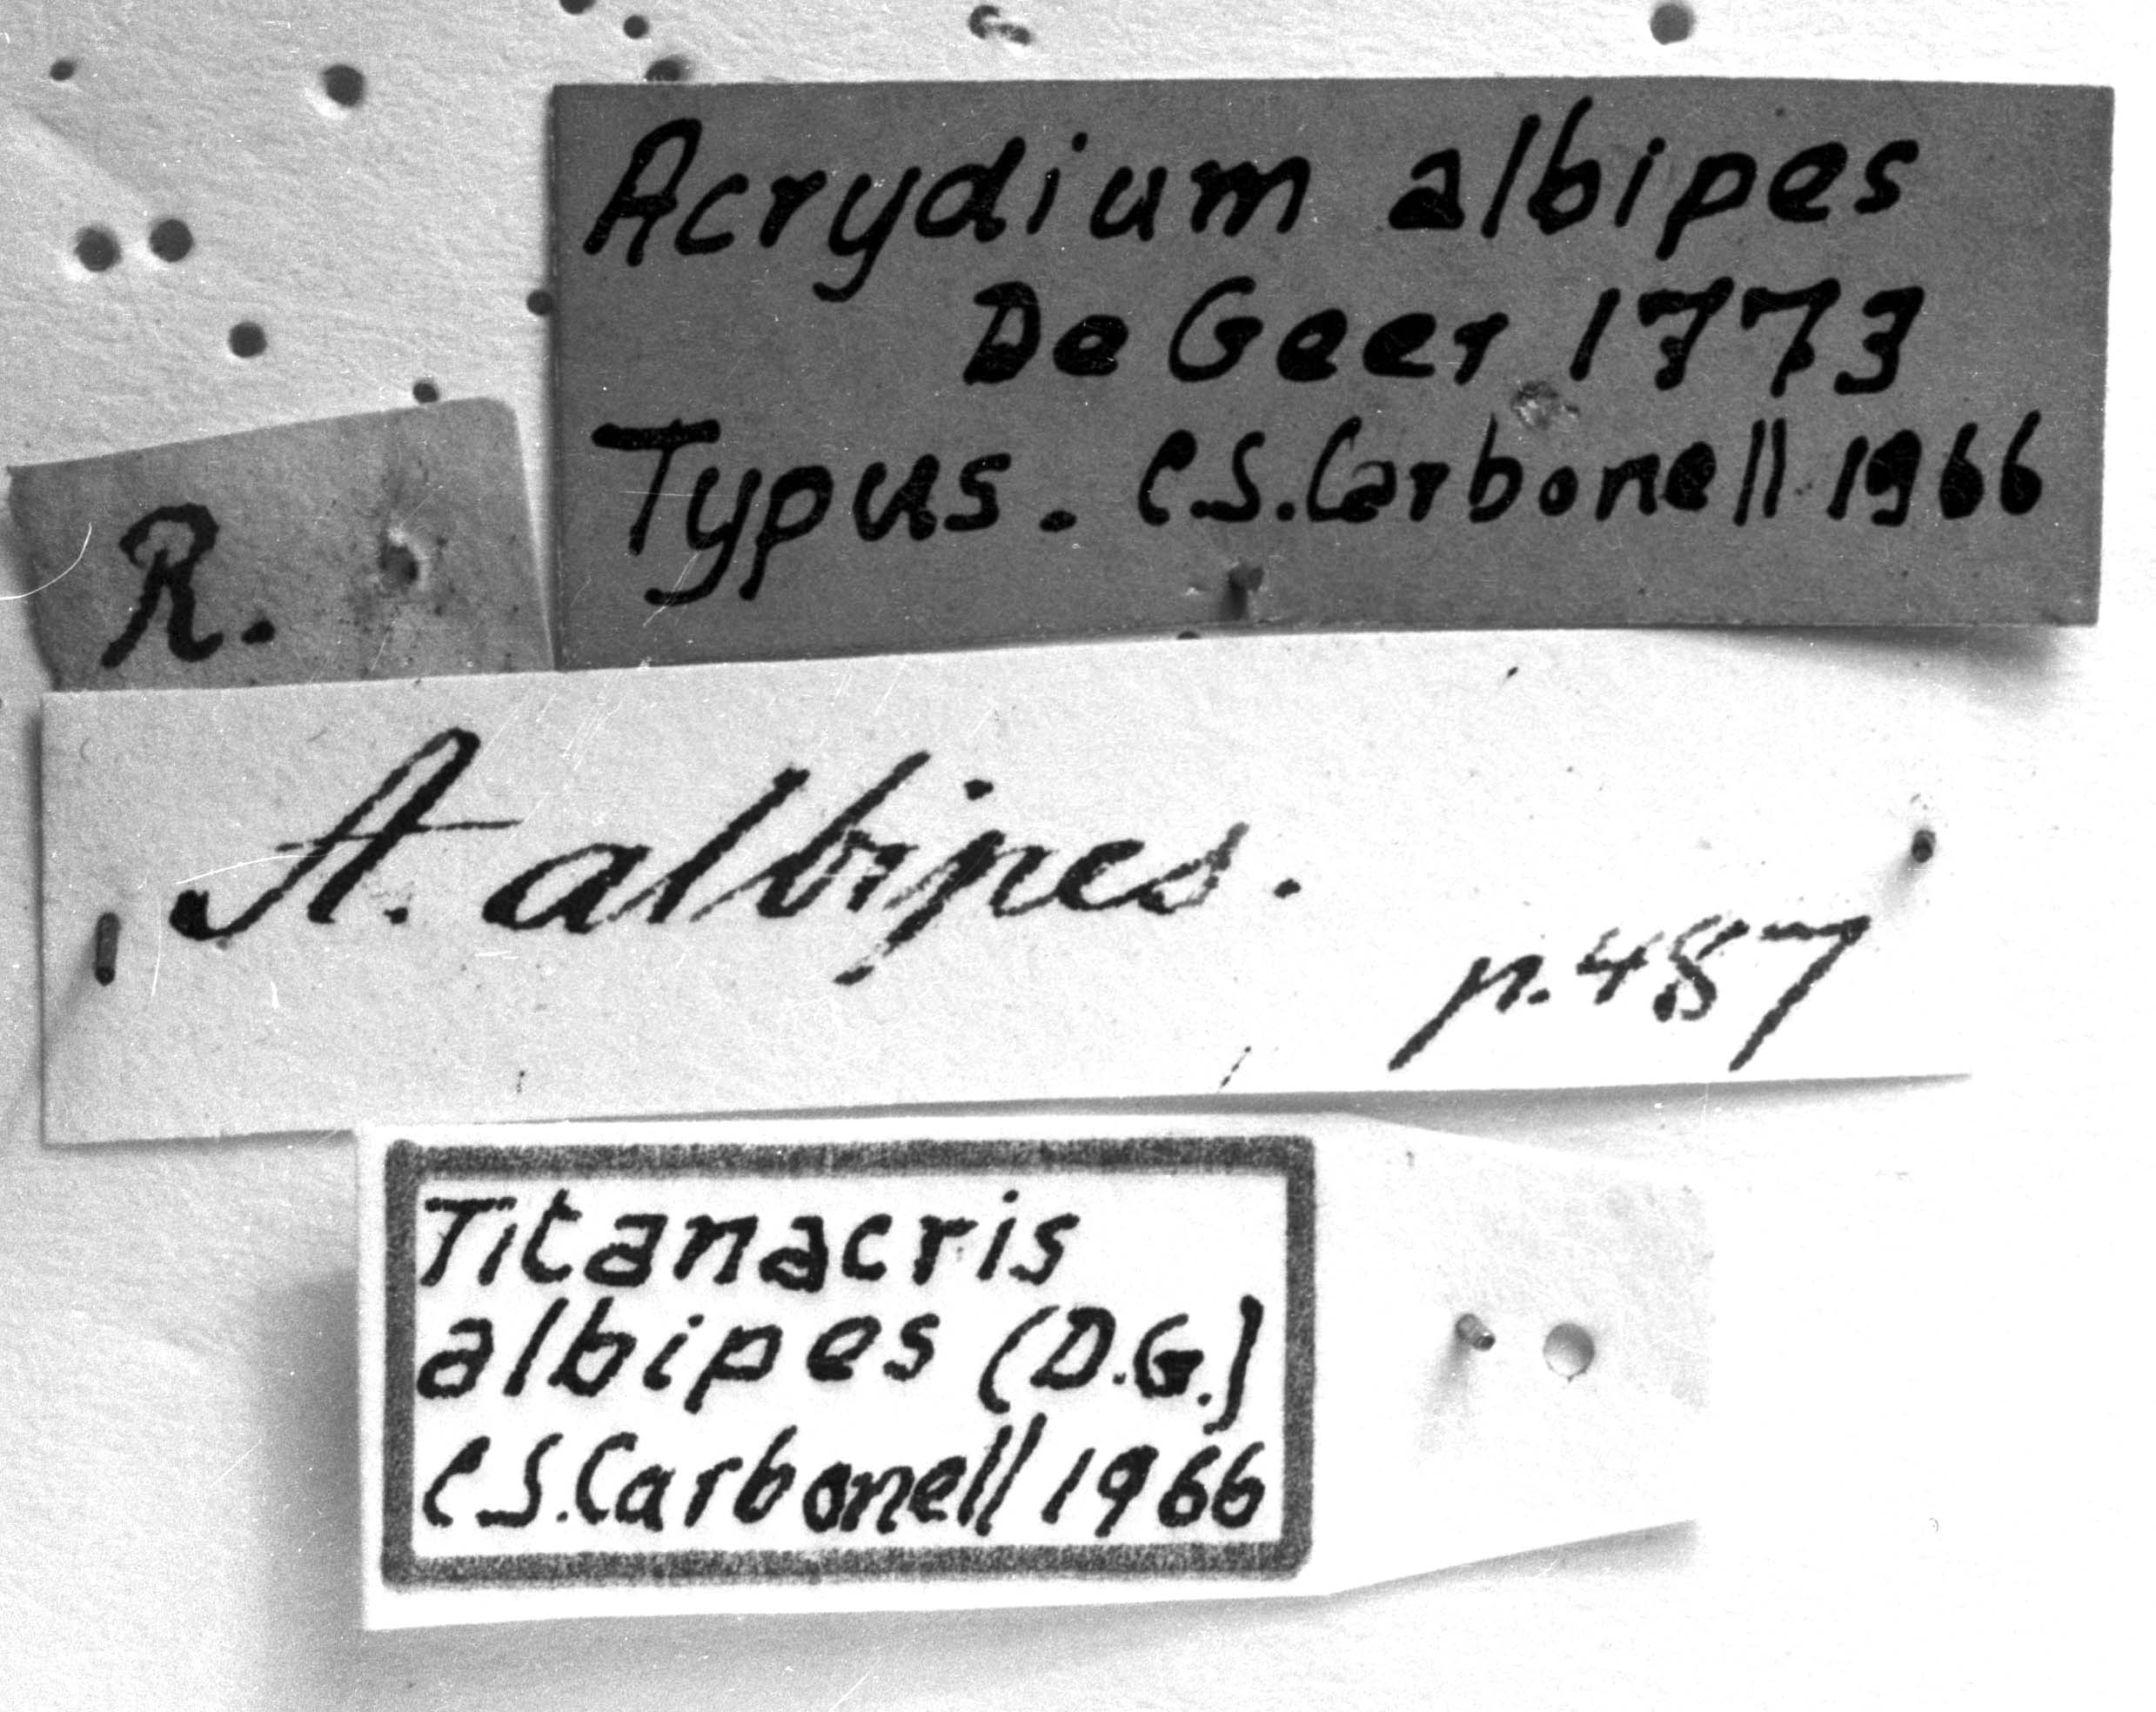 Acrydium albipes
De Geer 1773
Typus. C.S.Carbonell 1966
R.
A. albipes.
p.487
Titanacris
albipes (D.G.)
C.S.Carbonell 1966